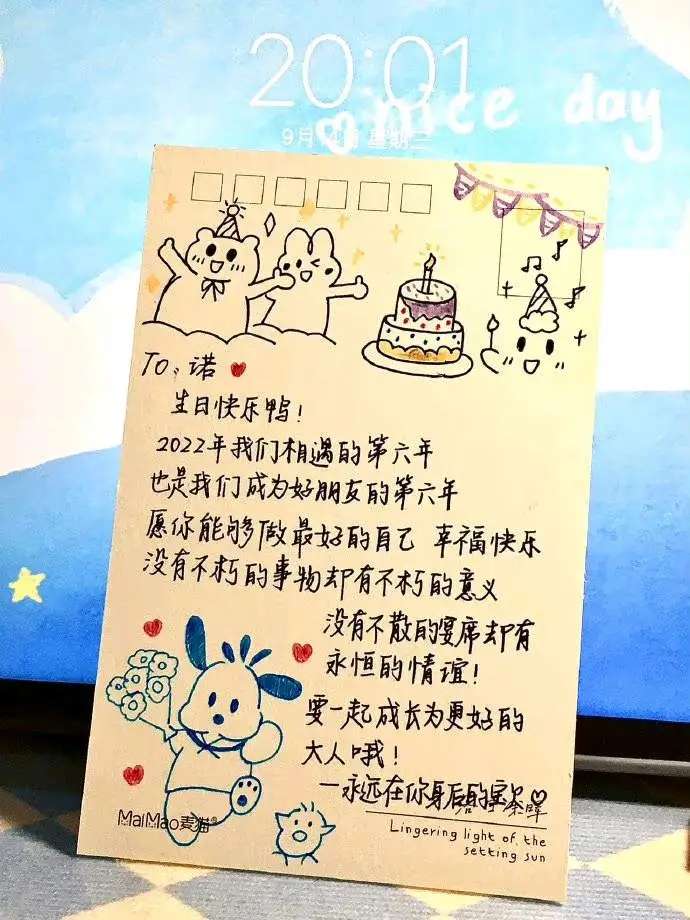 20:01
nice day
9月 星期二
To: 诺
生日快乐鸭!
2022年我们相遇的第六年
也是我们成为好朋友的第六年
愿你能够做最好的自己 幸福快乐
没有不朽的事物却有不朽的意义
没有不散的宴席却有
永恒的情谊!
要一起成长为更好的
大人哦!
—永远在你身后的
MaiMao麦猫®
Lingering light of the
setting sun